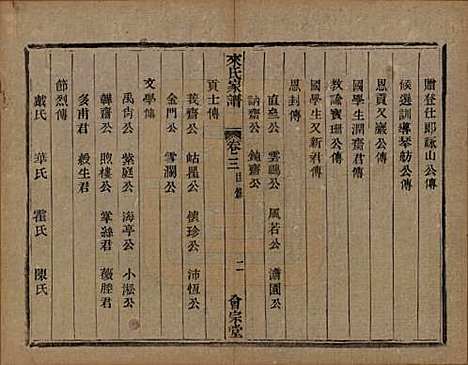 贈登仕郎詠山公傳
候選訓導琴舫公傳
恩貢又巖公傳
國學生潤齋公傳
教諭寶珊公傳
國學生又新君傳
恩封傳
直垒公 雲鷗公 風若公 瀟園公
訥齋公 鈍齋公
來氏家譜 卷三 目錄 二 會宗堂
貢士傳
莪齋公 岵瞿公 懷珍公 沛恆公
金門公 雪瀾公
文學傳
禹尙公 紫庭公 海亭公 小淞公
慎齋公 煦樓公 掌絲君 薇塍君
多甫君 穀生君
節烈傳
戴氏 華氏 霍氏 陳氏